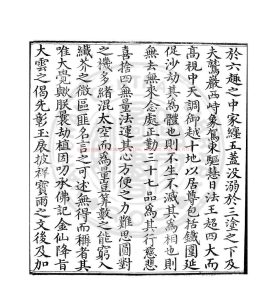 於六趣之中家纏五蓋没溺於三塗之下及
夫鷲巖西峙象駕東驅慧日法王超四大而
高視中天調御越十地以居尊包括鐵圍延
促沙劫其為體也則不生不滅其為相也則
無去無來念處正勤三十七品為其行慈悲
喜捨四無量法運其心方便之力難思圓對
之機多緒混太空而為量豈算數之能窮入
纖芥之微區匪名言之可述無得而稱者其
唯大覺歟朕曩劫植因叨承佛記金仙降旨
大雲之偈先彰玉扆披祥寶雨之文後及加